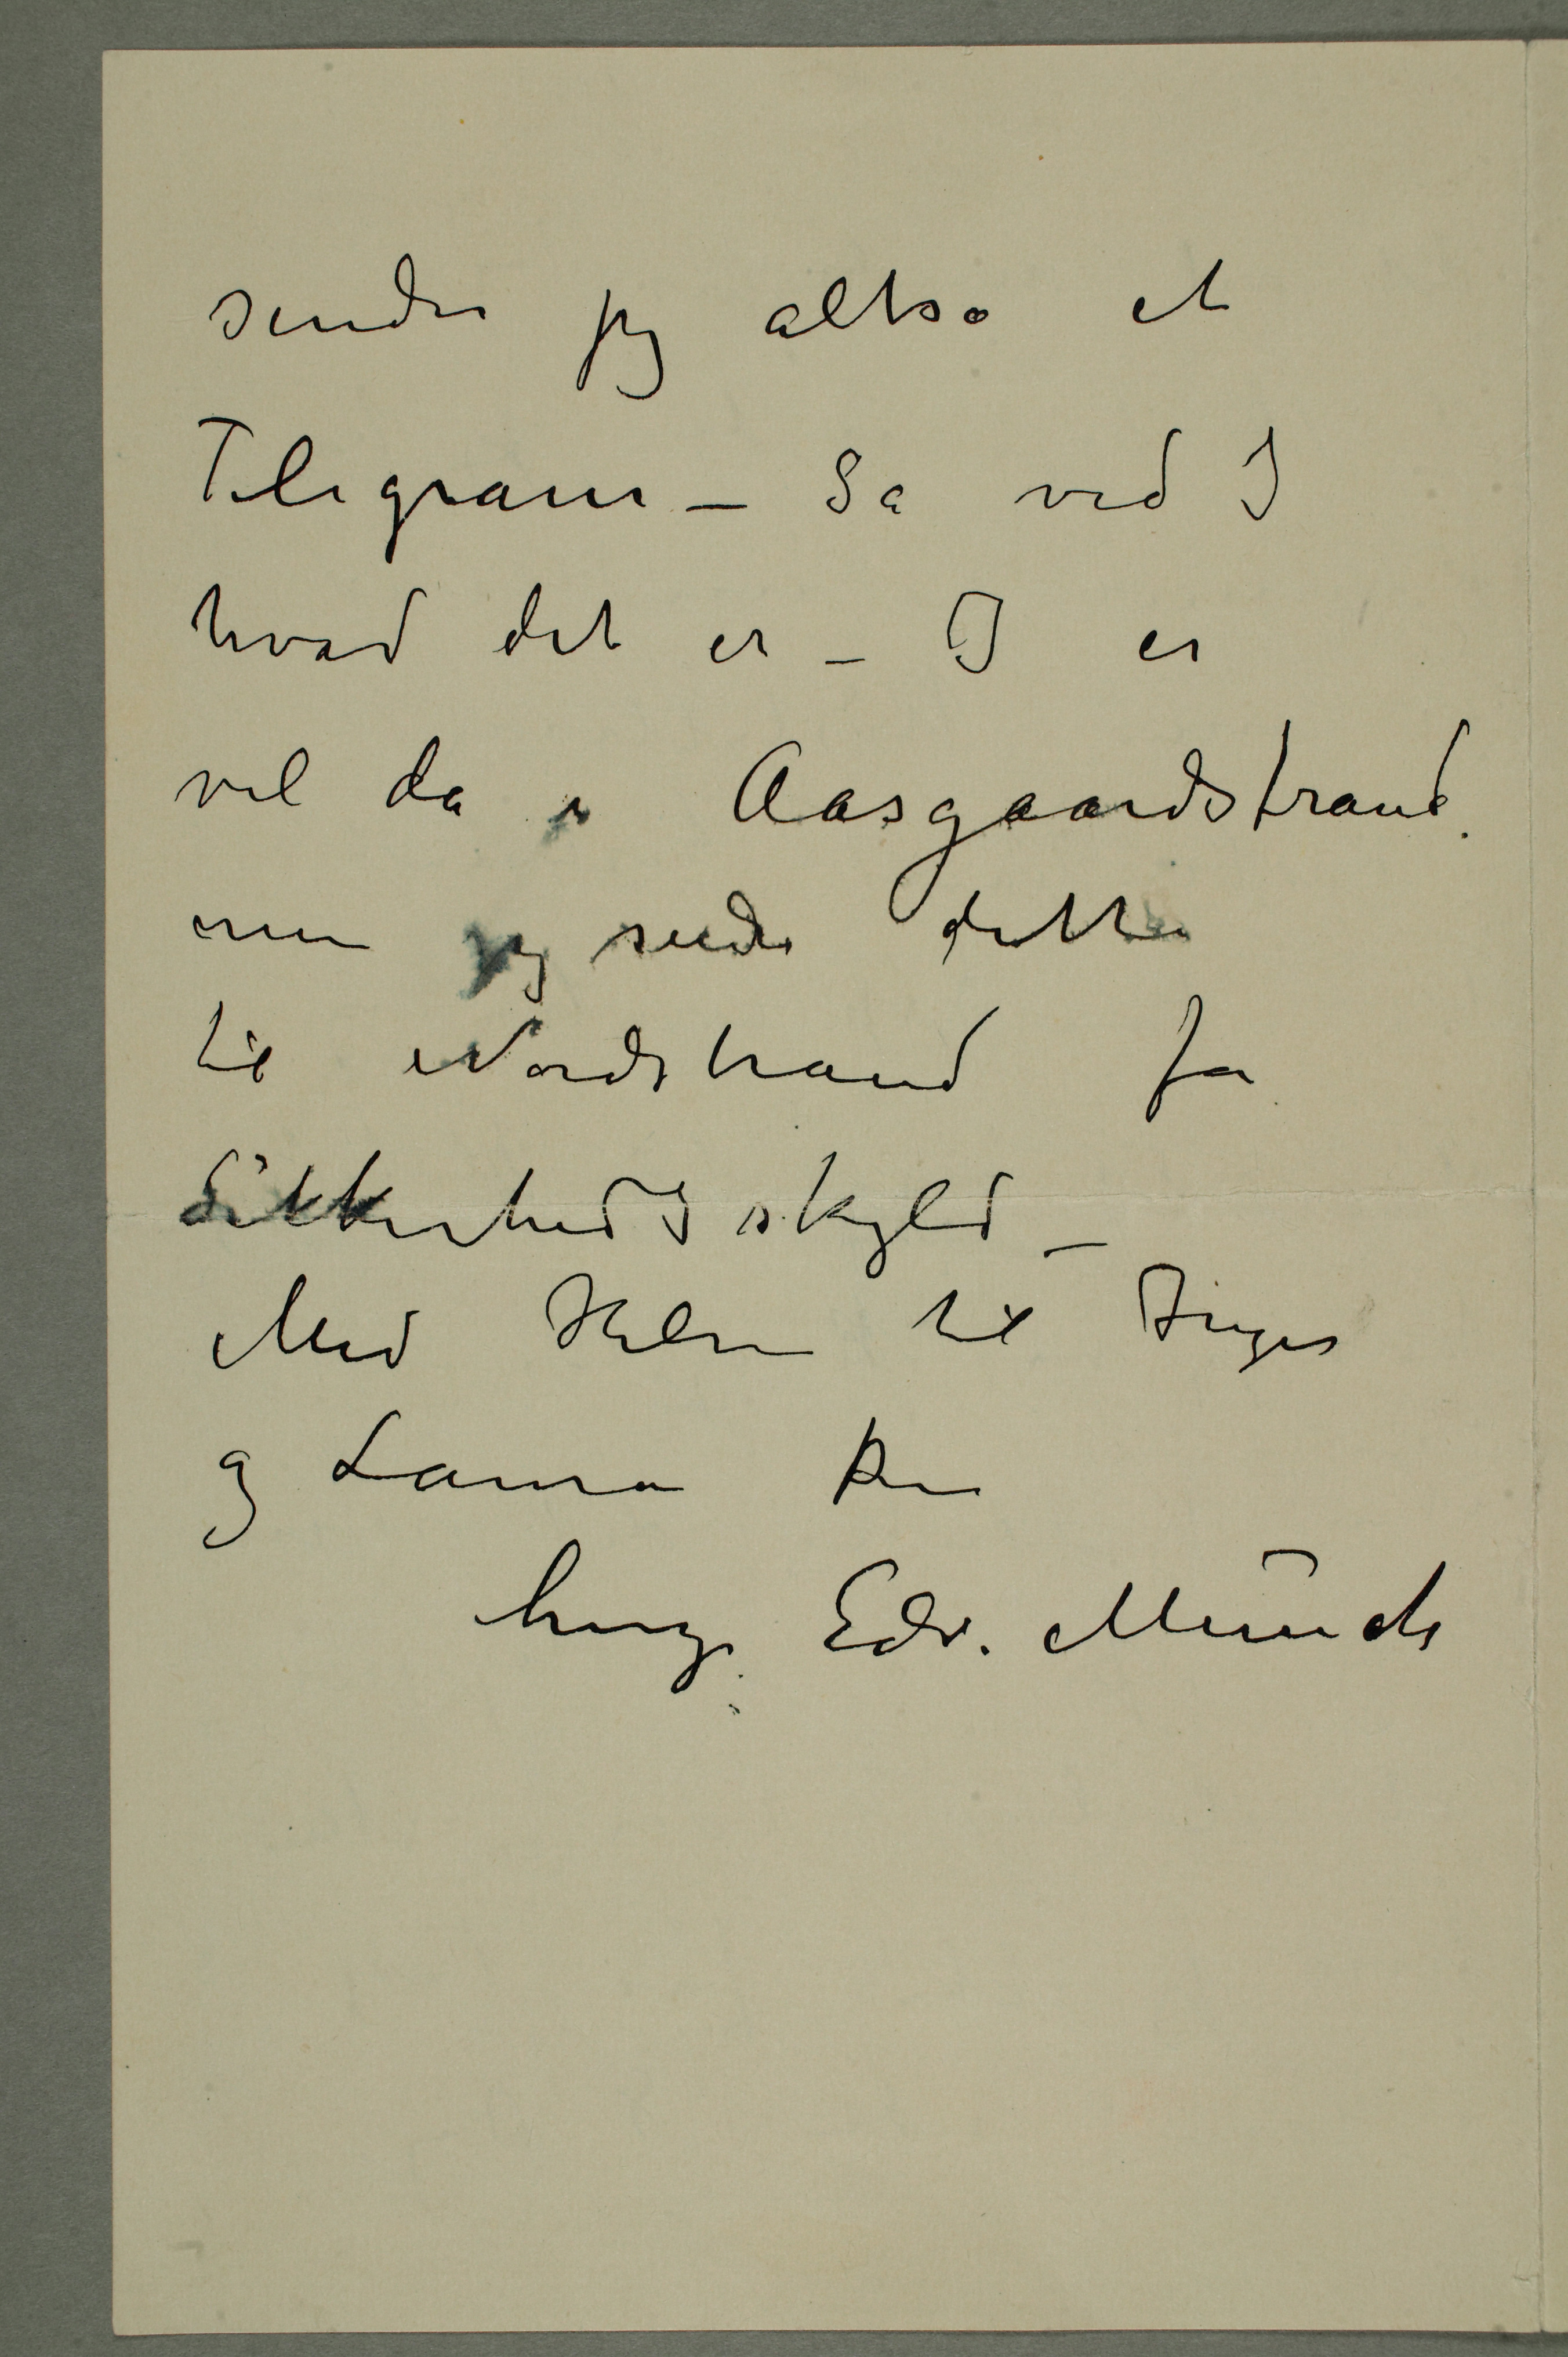 sender jeg altså et
Telegram – Så ved I
hvad det er – I er
vel da i Aasgaardstrand.
men jeg sender dette
til Nordstrand for
Sikkerheds skyld –
Med Hilsen til Inger
og Laura Din
heng. Edv. Munch